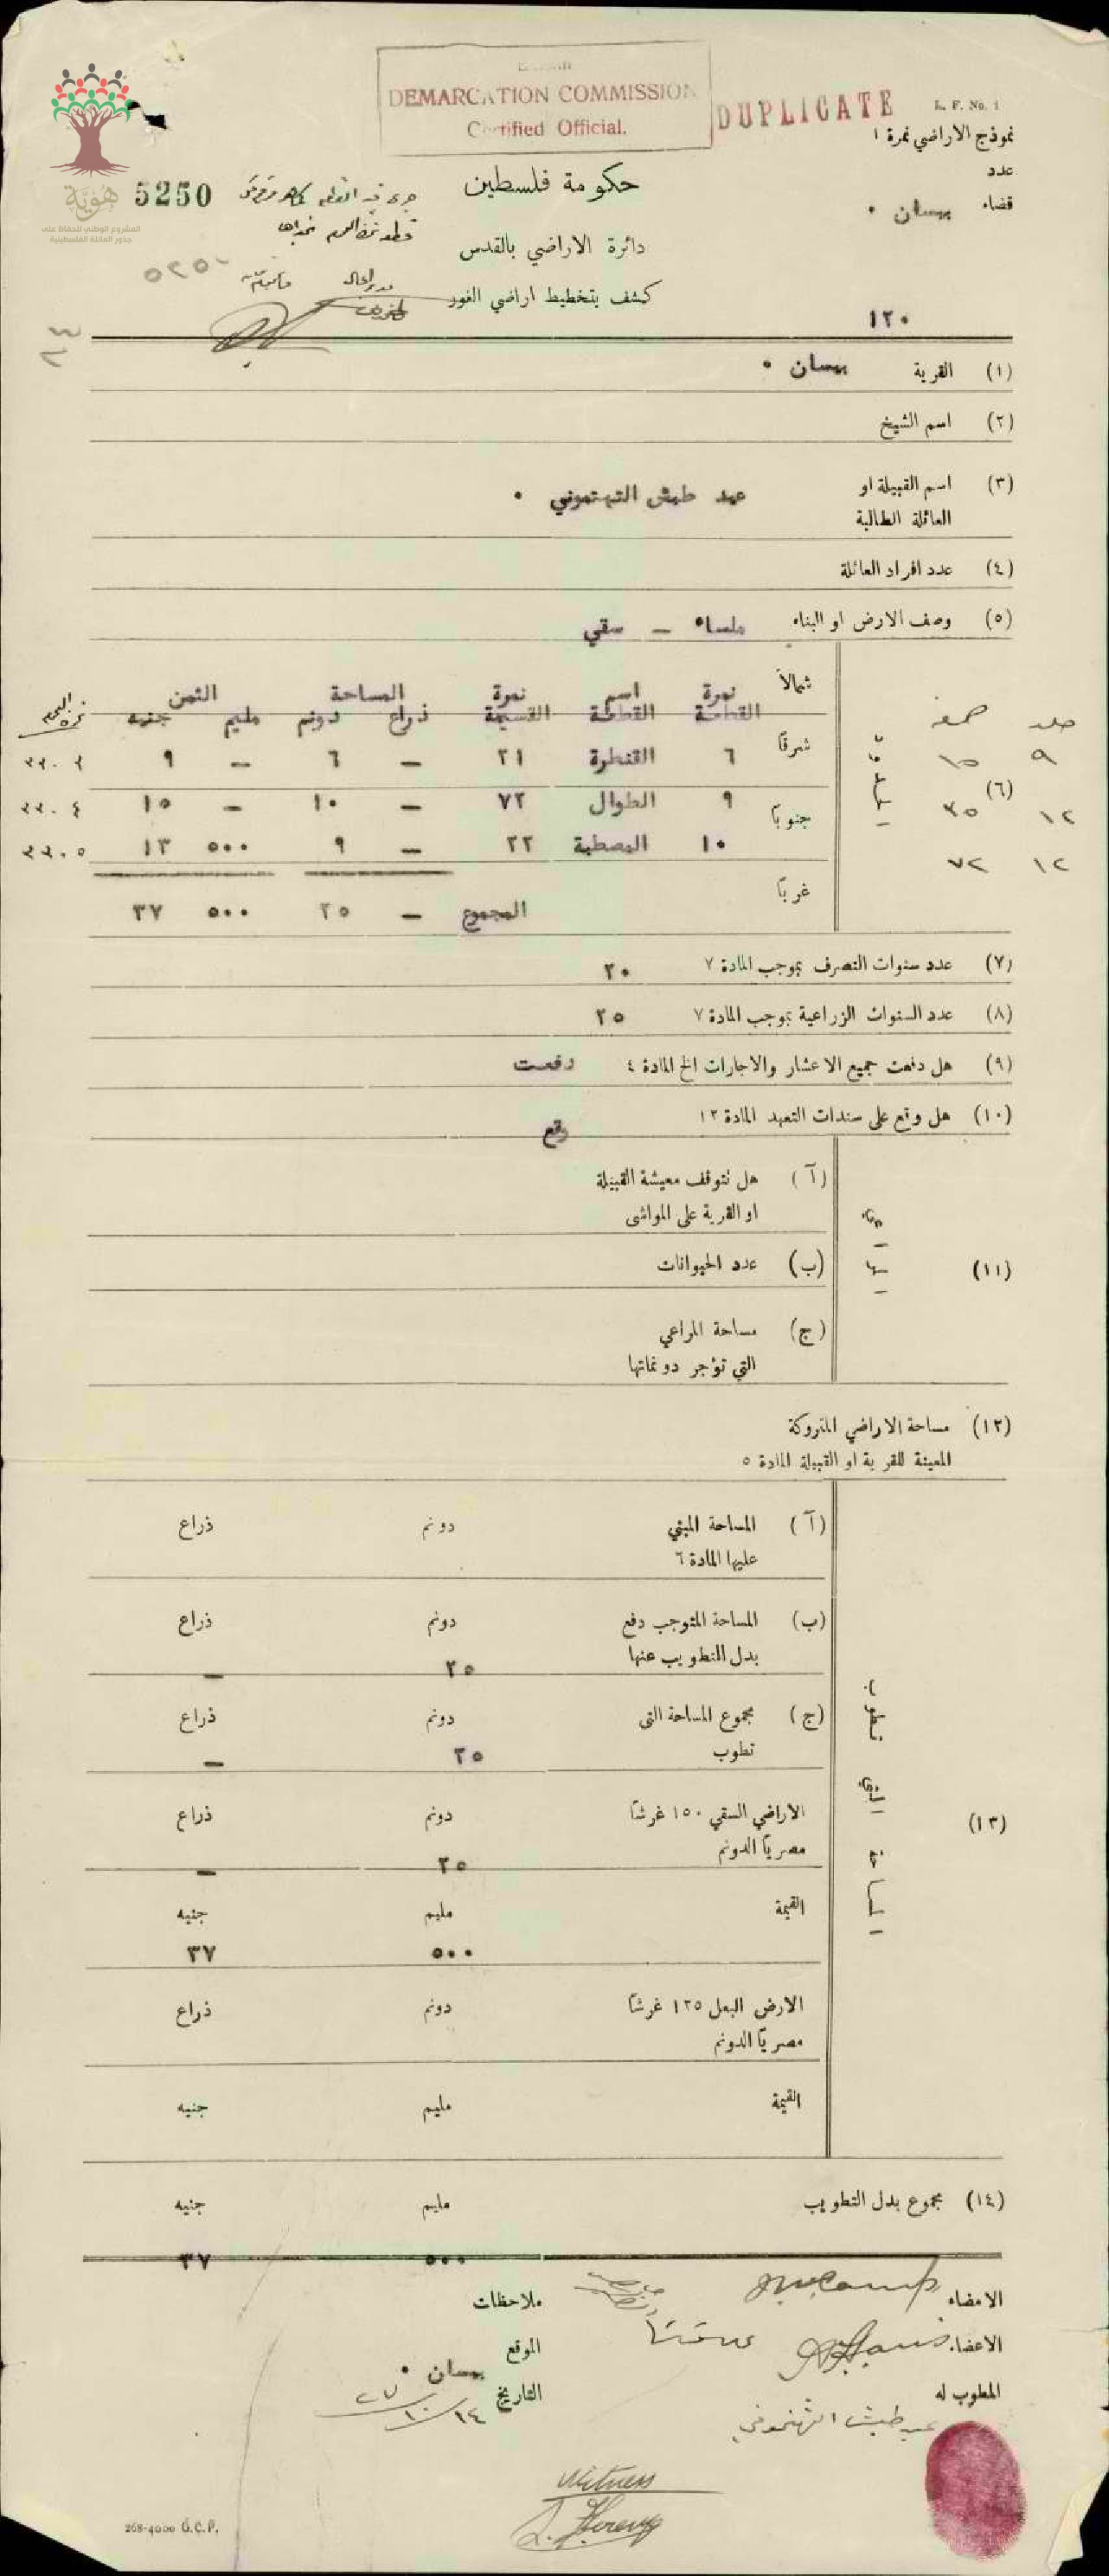 DEMARCATION COMMISSION
Certified Official.
DUPLICATE
L. F. No. 1
نموذج الاراضي نمرة ١
عدد
قضاء بيسان ٠
هوية
المشروع الوطني للحفاظ على
جذور العائلة الفلسطينية
5250
٥٢٥٠
حكومة فلسطين
دائرة الاراضي بالقدس
كشف بتخطيط اراضي الغور
١٢٠
(١) القرية بيسان ٠
(٢) اسم الشيخ
(٣) اسم القبيلة او العائلة الطالبة عبد طبش التهتموني ٠
(٤) عدد افراد العائلة
(٥) وصف الارض او البناء ملساء — سقي
(٦) الحدود
شمالاً
شرقاً
جنوباً
غرباً
نمرة القطعة اسم القطعة نمرة القسيمة المساحة ذراع دونم الثمن مليم جنيه
جلد صحيفة
٩ ١٥ ٦ القنطرة ٢١ — ٦ — ٩ ٣٣٠٣
١٢ ٣٥ ٩ الطوال ٧٢ — ١٠ — ١٥ ٣٣٠٤
١٢ ٧٢ ١٠ المصطبة ٢٢ — ٩ ٥٠٠ ١٣ ٣٣٠٥
المجموع — ٢٥ ٥٠٠ ٣٧
(٧) عدد سنوات التصرف بموجب المادة ٧ ٢٠
(٨) عدد السنوات الزراعية بموجب المادة ٧ ٢٥
(٩) هل دفعت جميع الاعشار والاجارات الخ المادة ٤ دفعت
(١٠) هل وقع على سندات التعهد المادة ١٣ وقع
(١١) المراعي
(آ) هل تتوقف معيشة القبيلة
او القرية على المواشى
(ب) عدد الحيوانات
(ج) مساحة المراعي
التي تؤجر دونماتها
(١٢) مساحة الاراضي المتروكة
المعينة للقرية او القبيلة المادة ٥
(١٣) المساحة التي تطوب
(آ) المساحة المبني دونم ذراع
عليها المادة ٦
(ب) المساحة المتوجب دفع دونم ذراع
بدل التطويب عنها ٢٥ —
(ج) مجموع المساحة التى دونم ذراع
تطوب ٢٥ —
الاراضي السقي ١٥٠ غرشاً دونم ذراع
مصرياً الدونم ٢٥ —
القيمة مليم جنيه
٥٠٠ ٣٧
الارض البعل ١٢٥ غرشاً دونم ذراع
مصرياً الدونم
القيمة مليم جنيه
(١٤) مجموع بدل التطويب مليم جنيه
٥٠٠ ٣٧
الامضاء
ملاحظات
الاعضاء
الموقع بيسان ٠
التاريخ ١٤/١٠/٢٧
المطوب له
عبد طبش التهتموني
Witness
268-4000 G.C.P.